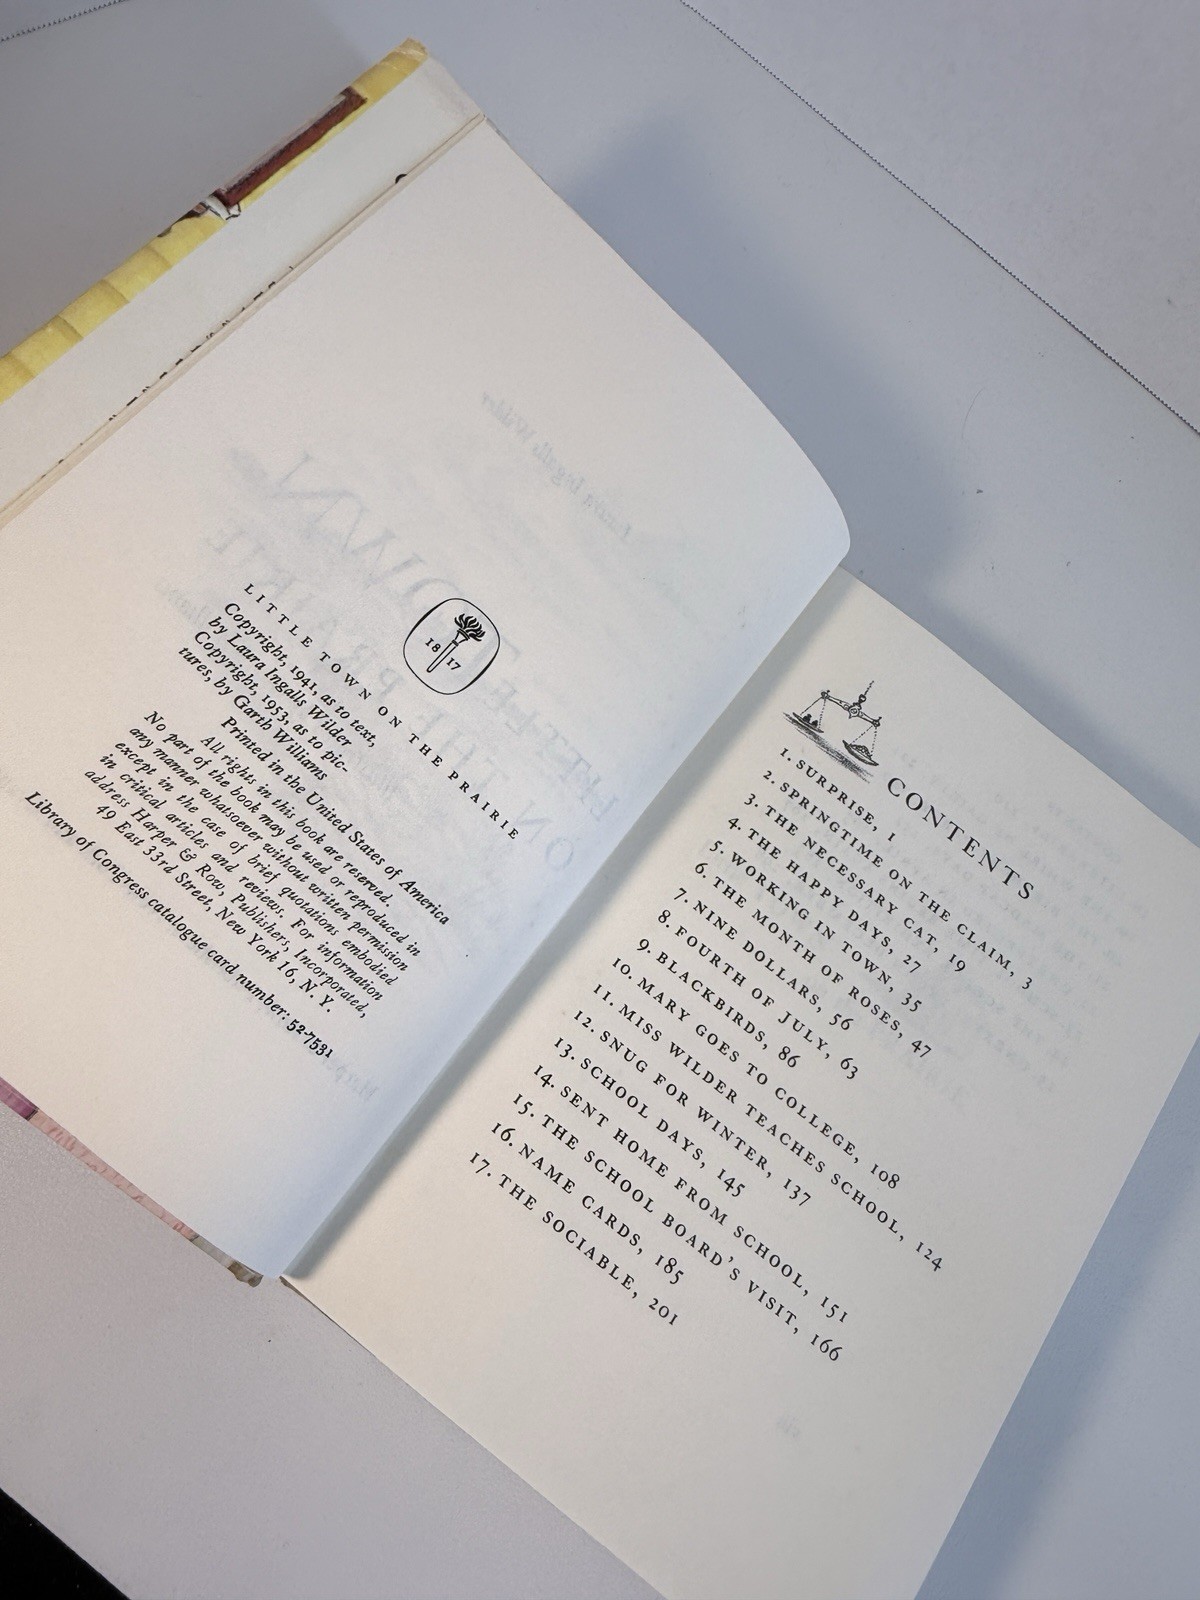 18 17
LITTLE TOWN ON THE PRAIRIE
Copyright, 1941, as to text,
by Laura Ingalls Wilder
Copyright, 1953, as to pic-
tures, by Garth Williams
Printed in the United States of America
All rights in this book are reserved.
No part of the book may be used or reproduced in
any manner whatsoever without written permission
except in the case of brief quotations embodied
in critical articles and reviews. For information
address Harper & Row, Publishers, Incorporated,
49 East 33rd Street, New York 16, N. Y.
Library of Congress catalogue card number: 52-7531
CONTENTS
1. SURPRISE, 1
2. SPRINGTIME ON THE CLAIM, 3
3. THE NECESSARY CAT, 19
4. THE HAPPY DAYS, 27
5. WORKING IN TOWN, 35
6. THE MONTH OF ROSES, 47
7. NINE DOLLARS, 56
8. FOURTH OF JULY, 63
9. BLACKBIRDS, 86
10. MARY GOES TO COLLEGE, 108
11. MISS WILDER TEACHES SCHOOL, 124
12. SNUG FOR WINTER, 137
13. SCHOOL DAYS, 145
14. SENT HOME FROM SCHOOL, 151
15. THE SCHOOL BOARD'S VISIT, 166
16. NAME CARDS, 185
17. THE SOCIABLE, 201